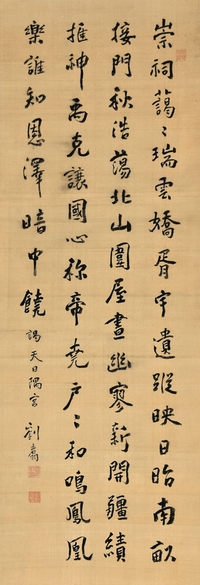 崇祠藹〻瑞雲嬌胥宇遺蹤映日昭南畝
接門秋浩蕩北山圍屋晝幽寥新開疆績
推神禹克讓國心称帝堯戶〻和鳴鳳凰
樂誰知恩澤暗中饒
謁天日隅宮 劉肅